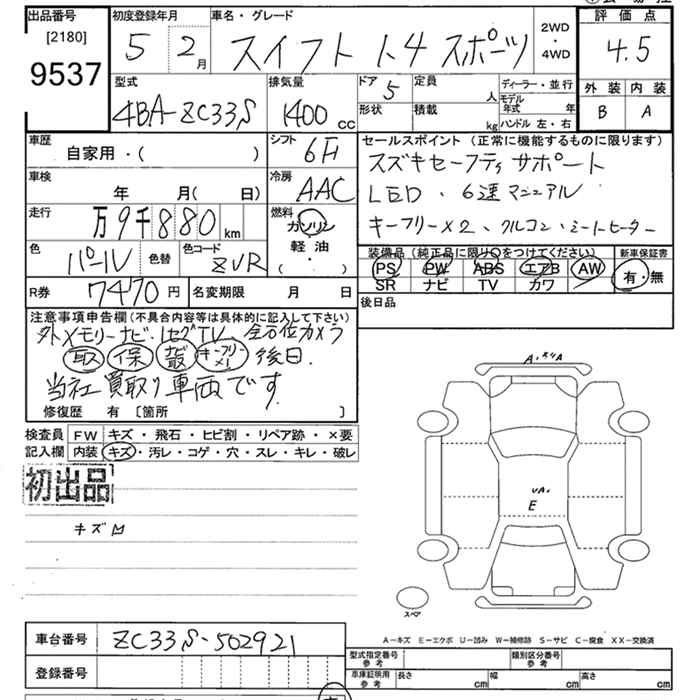 出品番号
[2180]
9537
初度登録年月
5 2月
車名・グレード
スイフト 1.4 スポーツ
2WD
4WD
評価点
4.5
外装 内装
B A
型式
4BA-ZC33S
排気量
1400 cc
ドア 5
定員 人
形状
積載 kg
ディーラー・並行
モデル年式 年
ハンドル 左・右
車歴
自家用・( )
シフト
6F
車検
年 月( 日)
冷房
AAC
走行
万9千880 km
燃料
ガソリン
軽油
( ・ )
色
パール
色替
色コード
ZVR
R券 7470 円
名変期限 月 日
セールスポイント (正常に機能するものに限ります)
スズキセーフティサポート
LED、6速マニュアル
キーフリー×2、クルコン、シートヒーター
装備品 (純正品に限り○をつけてください)
PS PW ABS エアB AW
SR ナビ TV カワ
新車保証書
有・無
後日品
注意事項申告欄(不具合内容等は具体的に記入して下さい)
外メモリーナビ、1セグTV、全方位カメラ
取 保 ナビ キーフリー×1 後日.
当社買取り車両です
修復歴 有 〔箇所 〕
検査員記入欄
FW キズ・飛石・ヒビ割・リペア跡・×要
内装 キズ・汚レ・コゲ・穴・スレ・キレ・破レ
初出品
キズ
A.
E
スペア
A-キズ E-エクボ U-凹み W-補修跡 S-サビ C-腐食 XX-交換済
車台番号 ZC33S-502921
登録番号
型式指定番号 参考
類別区分番号 参考
車庫証明用 参考
長さ cm
幅 cm
高さ cm